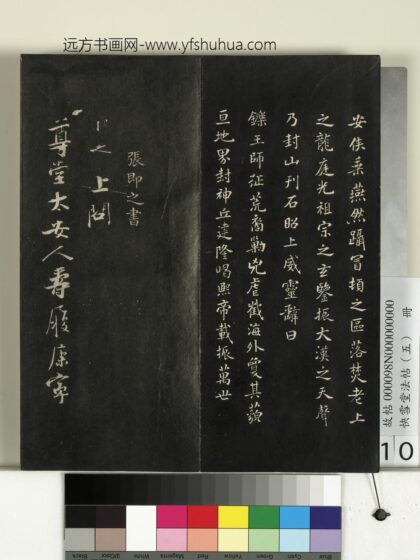 远方书画网-www.yfshuhua.com
安侯乘燕然躡冒頓之區落焚老上
之龍庭光祖宗之玄鑒振大漢之天聲
乃封山刊石昭上威靈辭曰
鑠王師征荒裔勦兇虐截海外敻其藐
亘地界封神丘建隆嵑熙帝載振萬世
張即之書
上問
尊堂太安人壽履康寧
故帖 000098N000000000
快雪堂法帖（五） 冊
10
Black
3/Color
White
Magenta
Red
Yellow
Green
Cyan
Blue